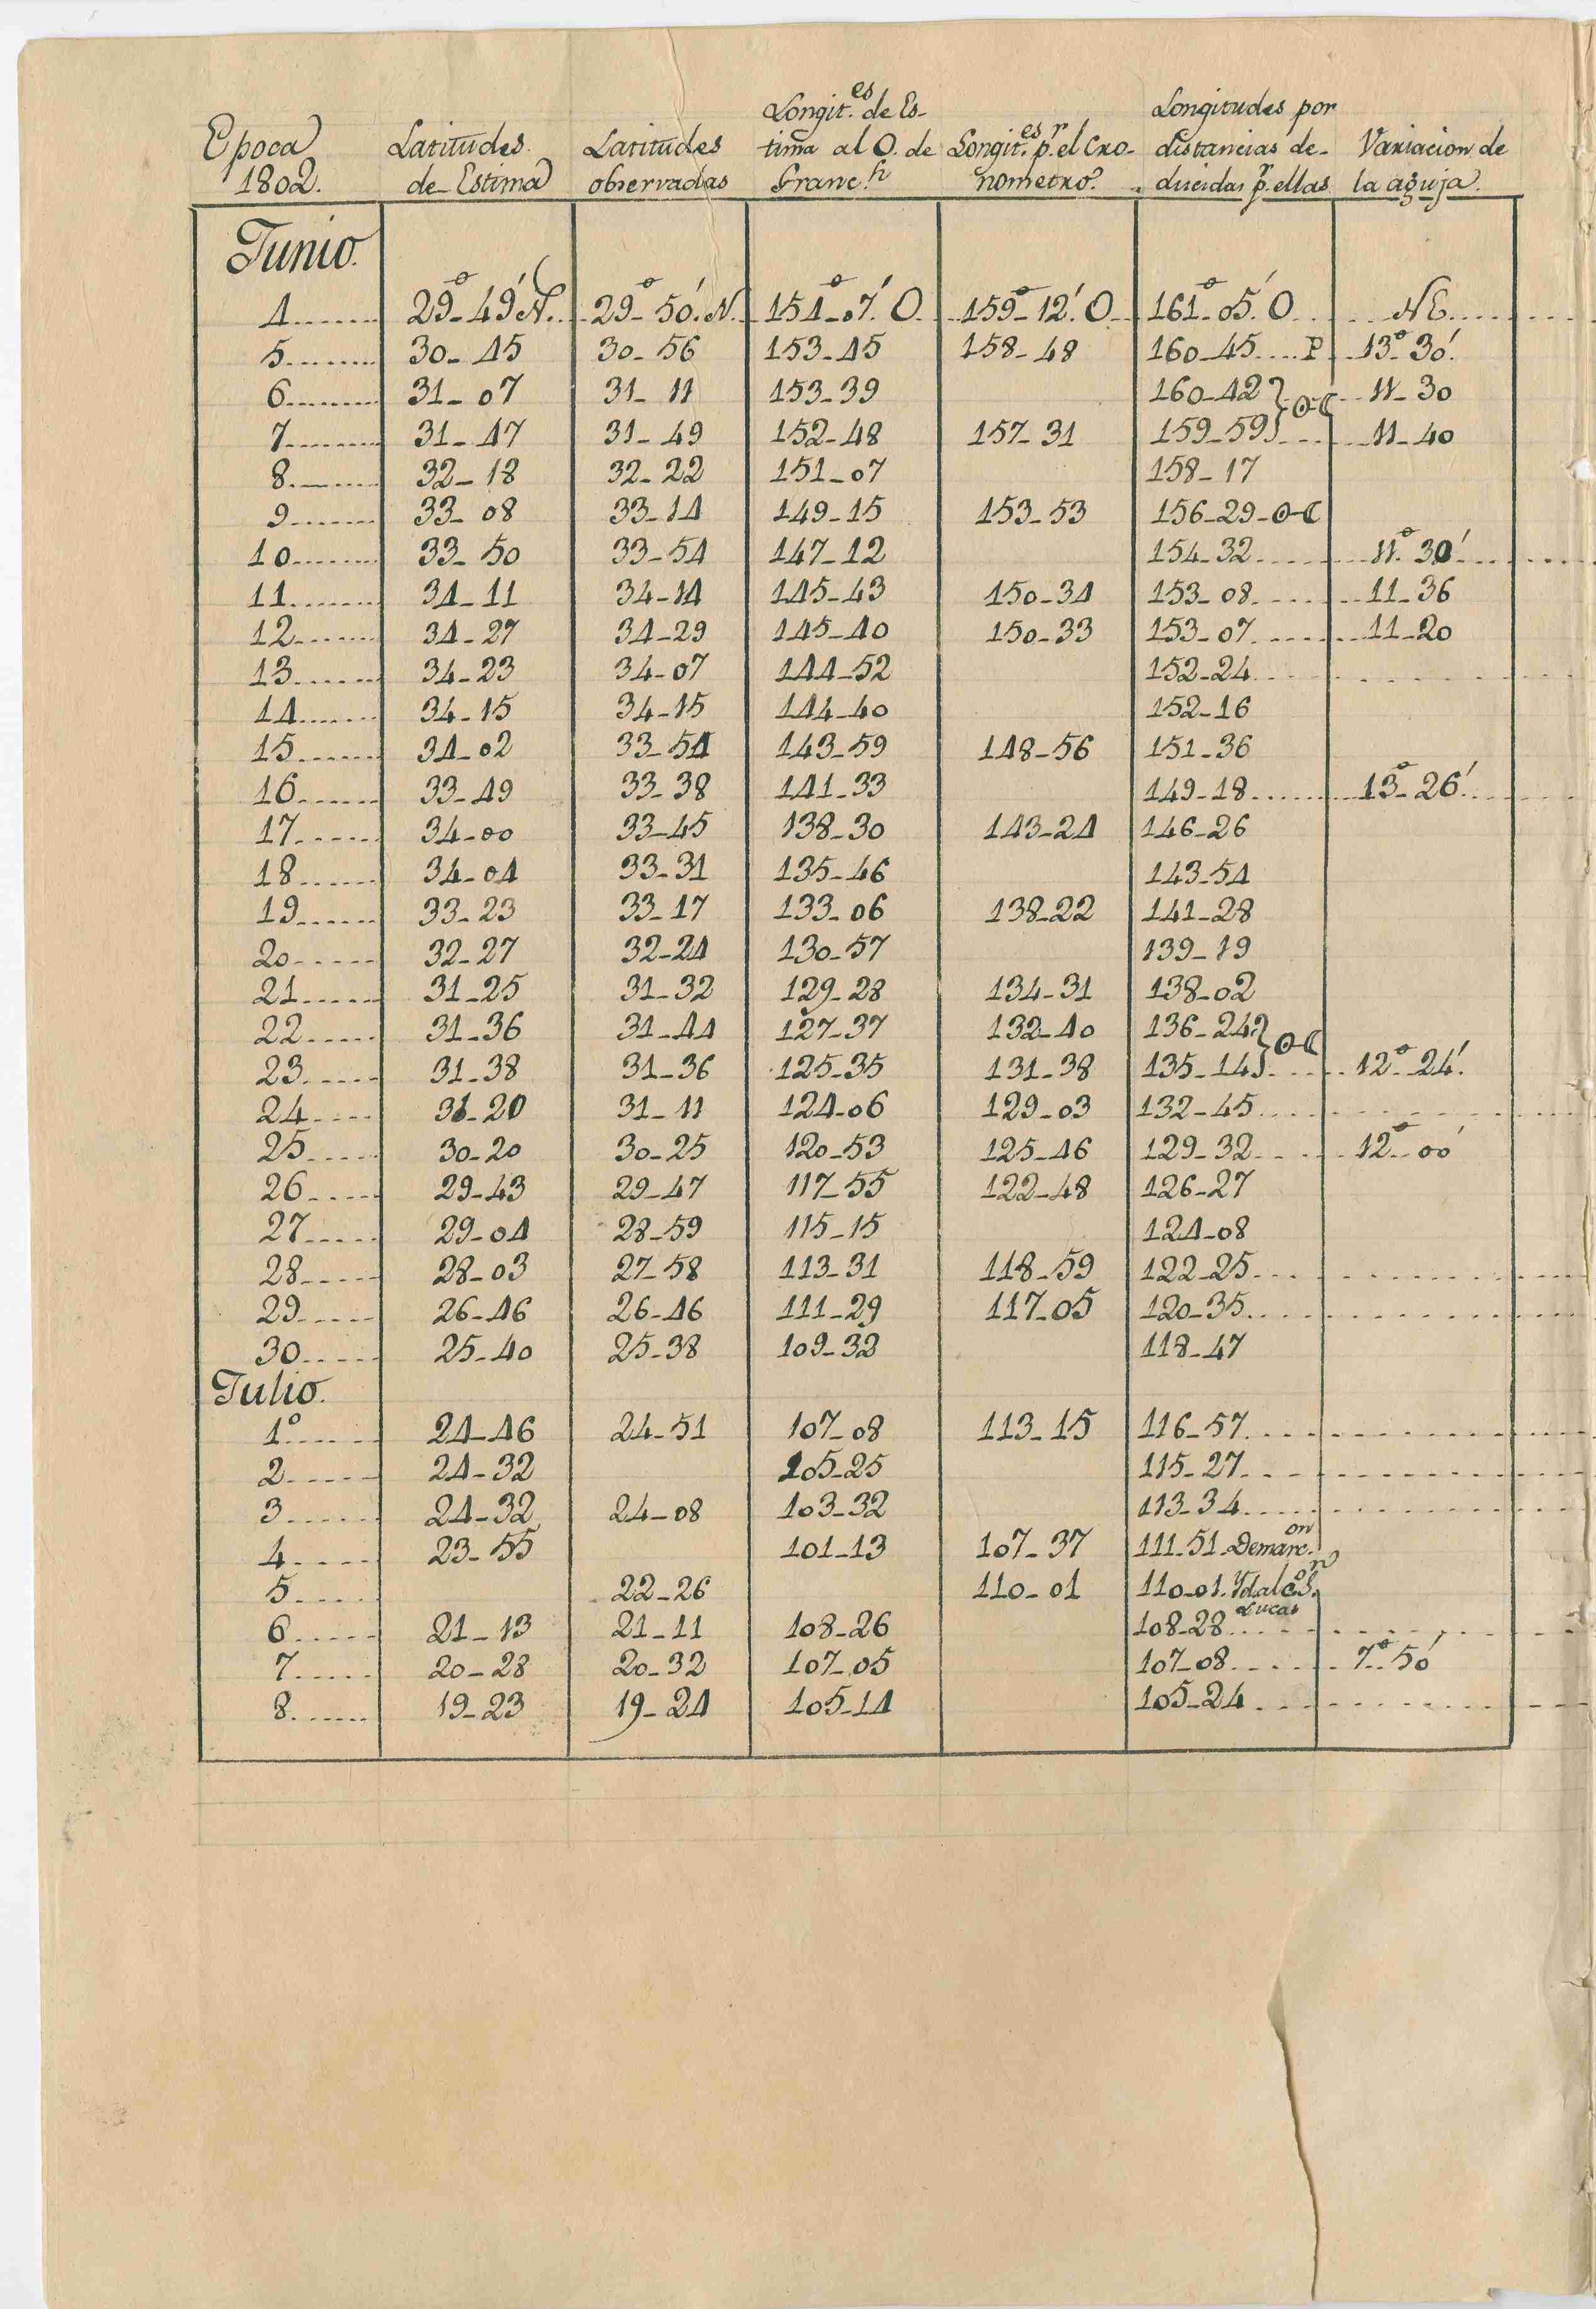 Epoca 1802.
Latitudes de Estima
Latitudes observadas
Longit.es de Estima al O. de Granc.h
Longit.es p.r el Cronometro.
Longitudes por distancias deducidas p.r ellas
Variacion de la aguja.
Junio.
4........ 29°-49' N. 29°-50'. N. 154°-07'. O. 159°-12'. O 161°-05'. O NE.
5........ 30-45 30-56 153-45 158-48 160-45....P 13°-30'.
6........ 31-07 31-11 153-39 160-42 ☉☾ 11-30
7........ 31-47 31-49 152-48 157-31 159-59 11-40
8........ 32-18 32-22 151-07 158-17
9........ 33-08 33-14 149-15 153-53 156-29-☉☾
10........ 33-50 33-54 147-12 154-32 11°-30'
11........ 34-11 34-14 145-43 150-34 153-08 11-36
12........ 34-27 34-29 145-40 150-33 153-07 11-20
13........ 34-23 34-07 144-52 152-24
14........ 34-15 34-15 144-40 152-16
15........ 34-02 33-54 143-59 148-56 151-36
16........ 33-49 33-38 141-33 149-18 13°-26'.
17........ 34-00 33-45 138-30 143-24 146-26
18........ 34-04 33-31 135-46 143-54
19........ 33-23 33-17 133-06 138-22 141-28
20........ 32-27 32-24 130-57 139-19
21........ 31-25 31-32 129-28 134-31 138-02
22........ 31-36 31-44 127-37 132-40 136-24 ☉☾
23........ 31-38 31-36 125-35 131-38 135-14 12°-24'.
24........ 31-20 31-11 124-06 129-03 132-45
25........ 30-20 30-25 120-53 125-46 129-32 12°-00'
26........ 29-43 29-47 117-55 122-48 126-27
27........ 29-04 28-59 115-15 124-08
28........ 28-03 27-58 113-31 118-59 122-25
29........ 26-46 26-46 111-29 117-05 120-35
30........ 25-40 25-38 109-32 118-47
Julio.
1°........ 24-46 24-51 107-08 113-15 116-57
2........ 24-32 105-25 115-27
3........ 24-32 24-08 103-32 113-34
4........ 23-55 101-13 107-37 111-51-Demarc.on
5........ 22-26 110-01 110-01. Yd. al c.o S.n Lucas
6........ 21-13 21-11 108-26 108-28
7........ 20-28 20-32 107-05 107-08 7°-50'
8........ 19-23 19-24 105-14 105-24